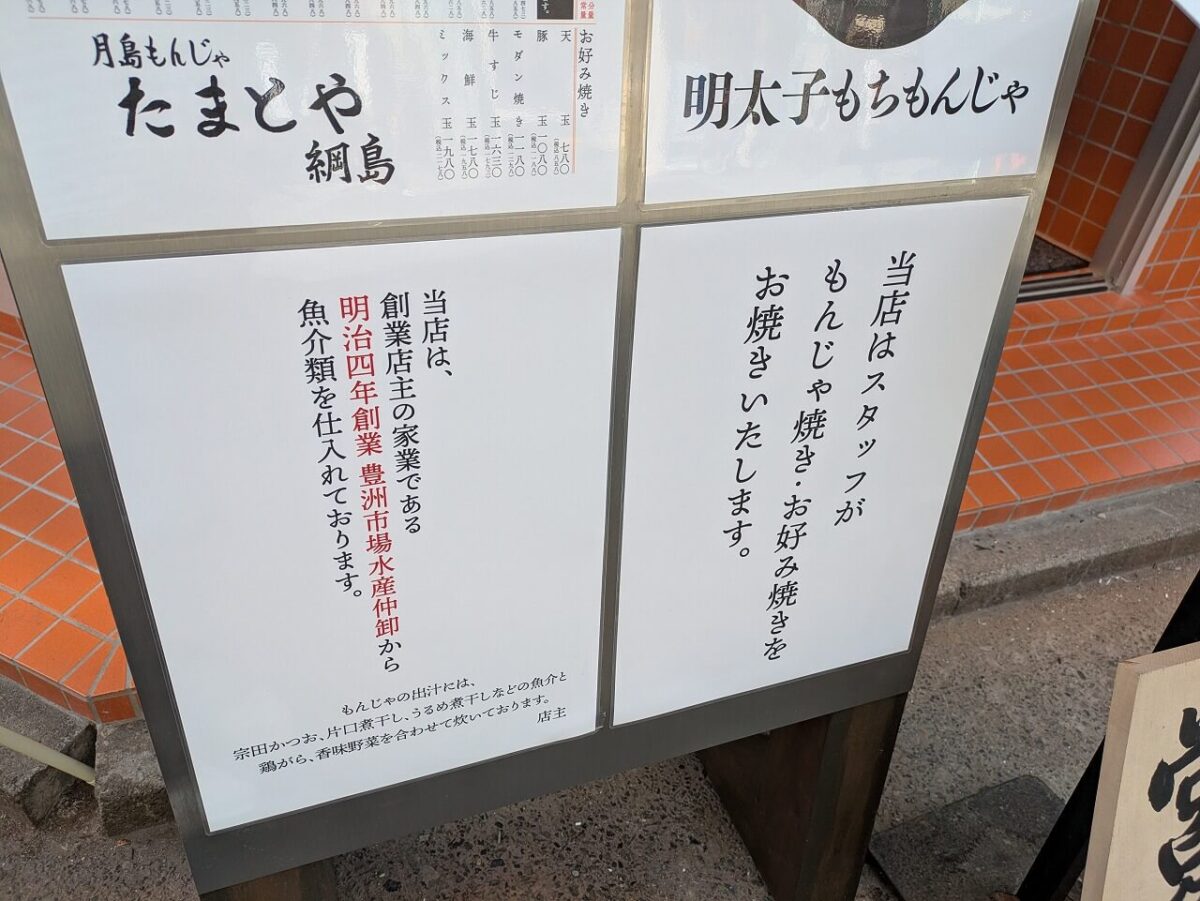 月島もんじゃ
たまとや
綱島
お好み焼き
天 玉 七八〇
豚 玉 一〇八〇
モダン焼き 一一八〇
牛すじ 玉 一六三〇
海鮮 玉 一七八〇
ミックス 玉 一九八〇
明太子もちもんじゃ
当店はスタッフが
もんじゃ焼き・お好み焼きを
お焼きいたします。
当店は、
創業店主の家業である
明治四年創業 豊洲市場水産仲卸から
魚介類を仕入れております。
もんじゃの出汁には、
宗田かつお、片口煮干し、うるめ煮干しなどの魚介と
鶏がら、香味野菜を合わせて炊いております。
店主